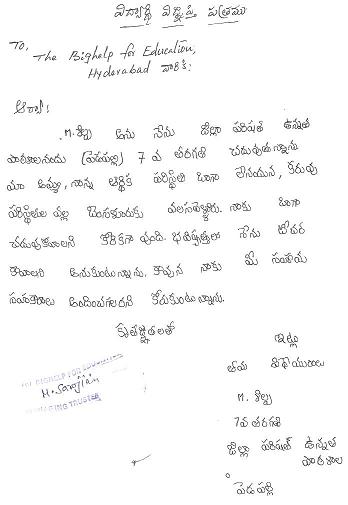 విద్యార్థి విజ్ఞప్తి పత్రము
To,
The Bighelp for Education,
Hyderabad వారికి:
ఆర్యా:
M. శిల్ప అను నేను జిల్లా పరిషత్ ఉన్నత
పాఠశాలనందు (పెడపల్లి) 7 వ తరగతి చదువుతున్నాను
మా అమ్మ, నాన్న ఆర్థిక పరిస్థితి బాగా లేనందున, కరువు
పరిస్థితుల వల్ల వలసవెళ్లారు. నాకు బాగా
చదువుకోవాలని కోరికగా వుంది. భవిష్యత్తులో నేను టీచర్
కావాలని అనుకుంటున్నాను. కావున నాకు మీ సహాయ
సహకారాలు అందించగలరని కోరుకుంటున్నాను.
కృతజ్ఞతలతో
ఇట్లు
తమ విధేయురాలు
M. శిల్ప
7వ తరగతి
జిల్లా పరిషత్ ఉన్నత
పాఠశాల
పెడపల్లి
BIGHELP FOR EDUCATION
M. Sarojini
MANAGING TRUSTEE